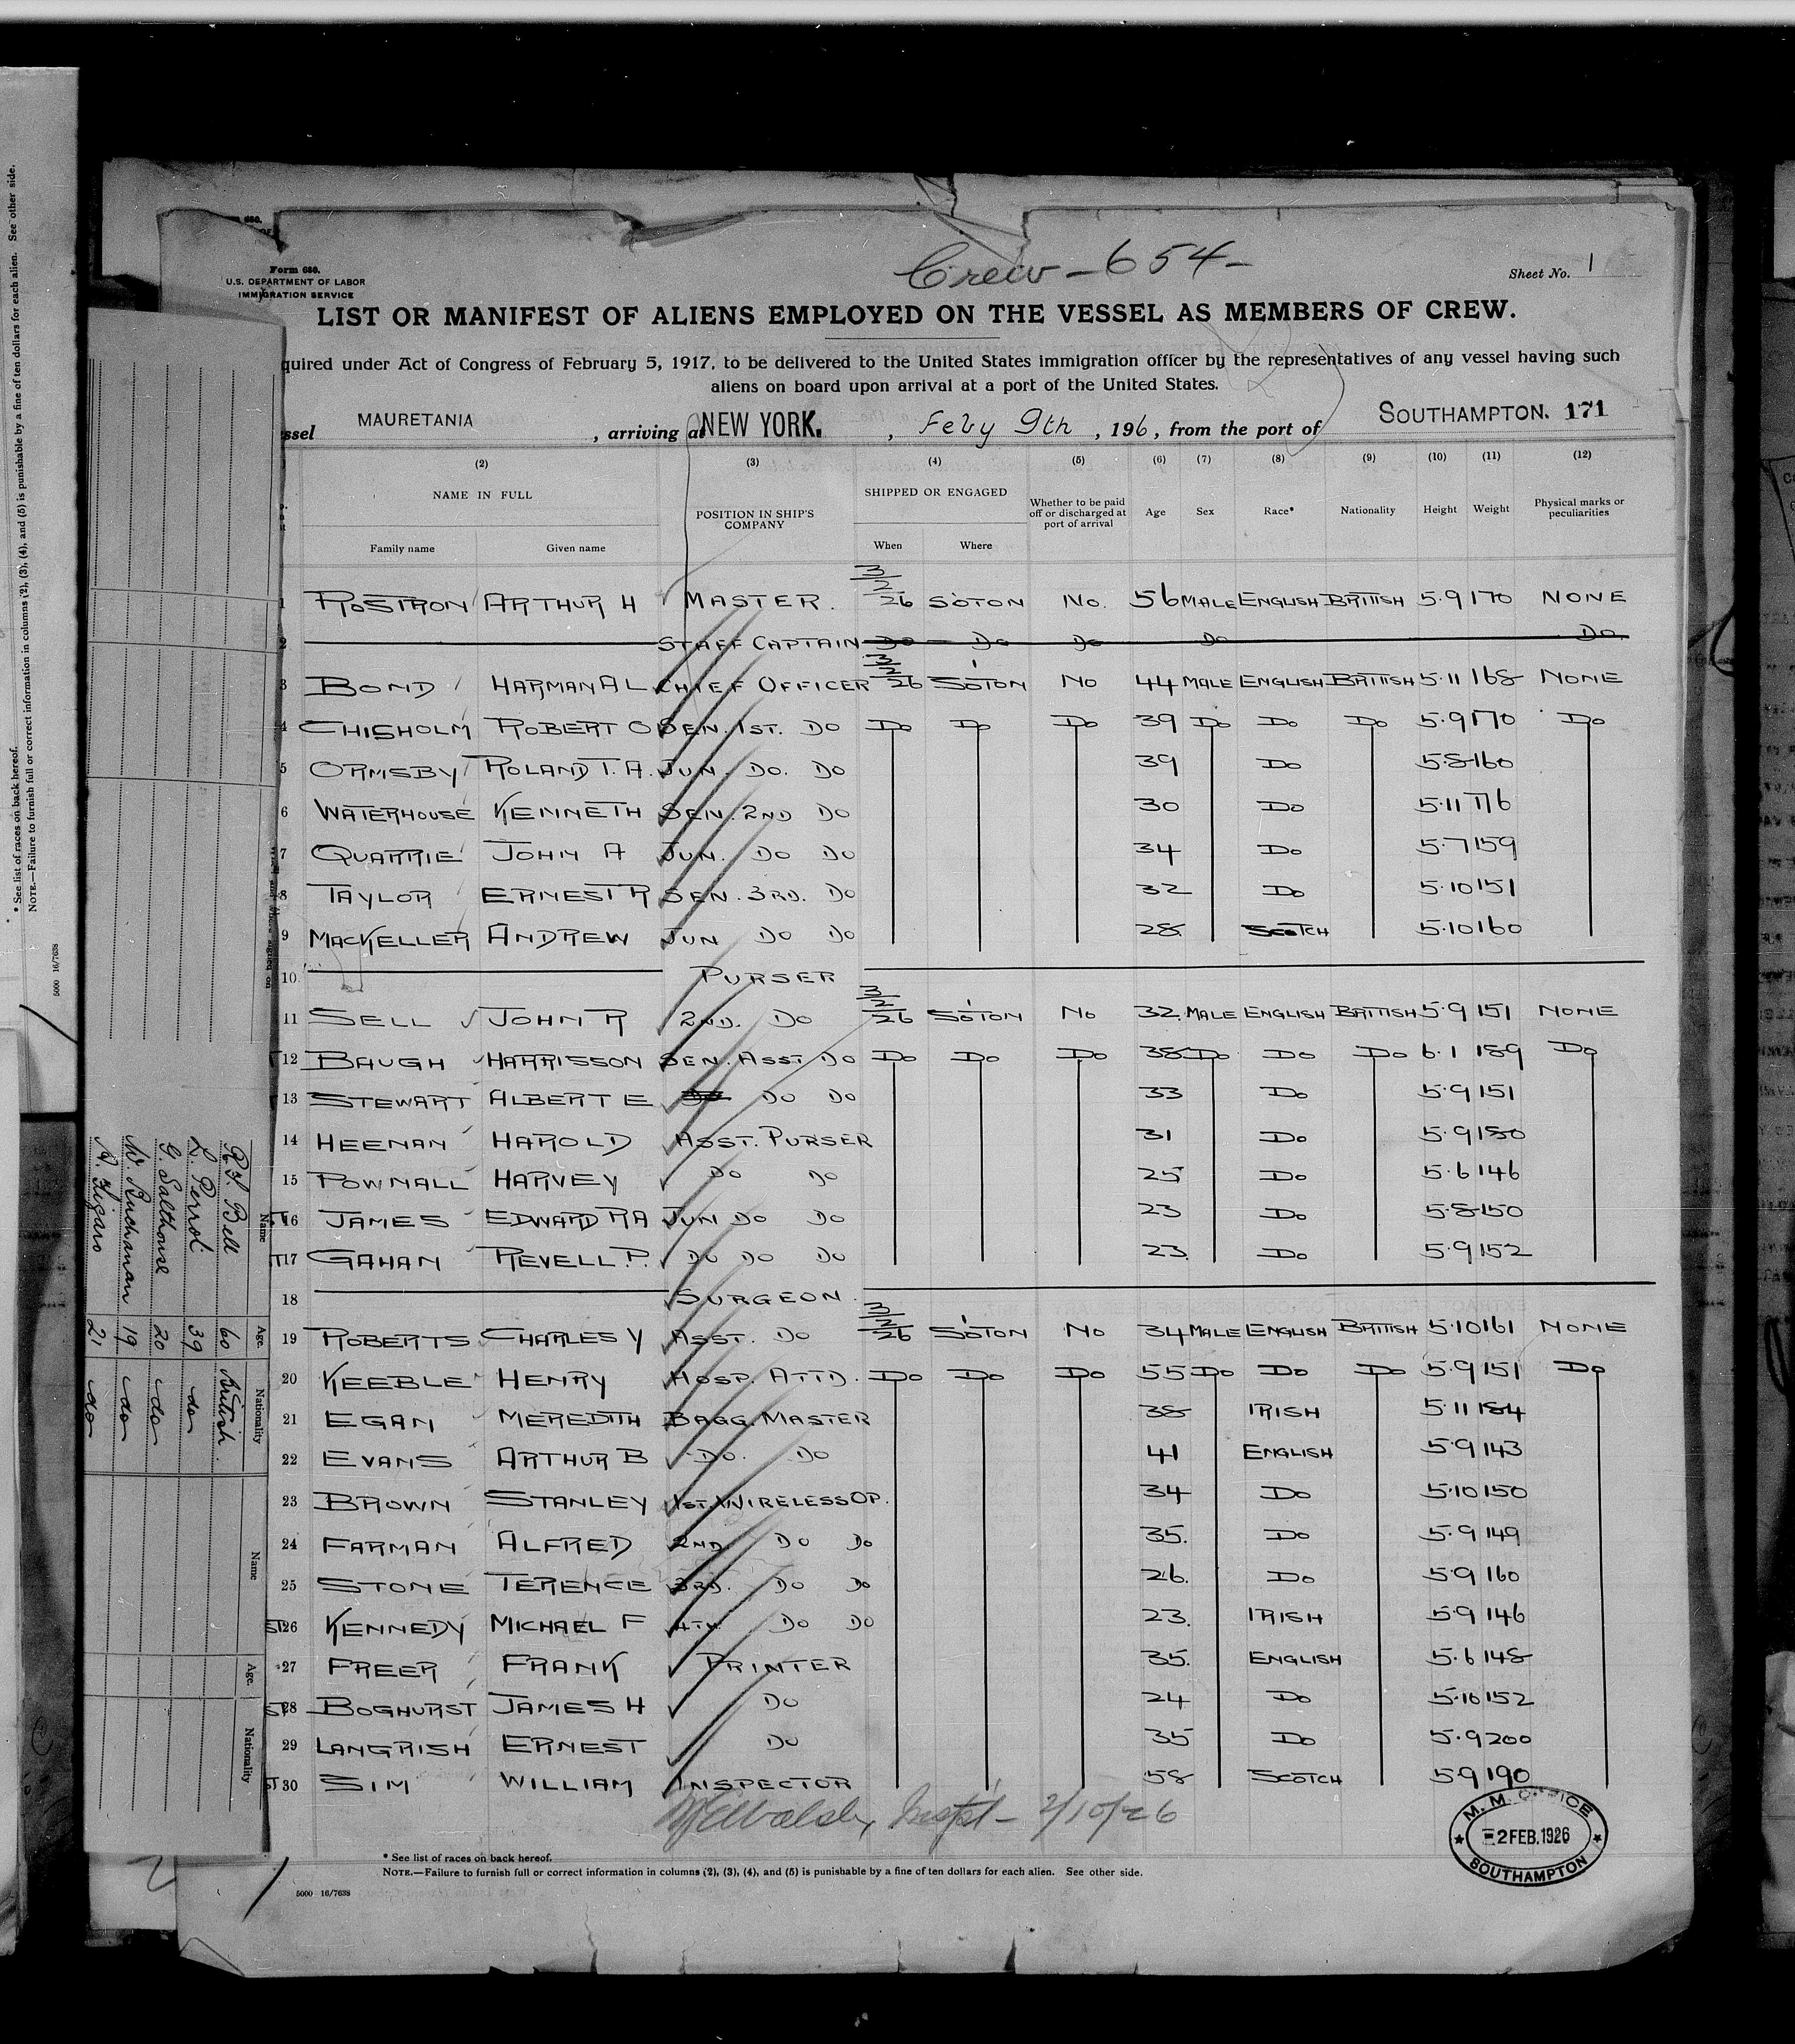 Form 680.
U.S. DEPARTMENT OF LABOR
IMMIGRATION SERVICE
Crew - 654 -
Sheet No. 1
LIST OR MANIFEST OF ALIENS EMPLOYED ON THE VESSEL AS MEMBERS OF CREW.
quired under Act of Congress of February 5, 1917, to be delivered to the United States immigration officer by the representatives of any vessel having such
aliens on board upon arrival at a port of the United States.
ssel MAURETANIA, arriving at NEW YORK., Feby 9th, 196, from the port of SOUTHAMPTON. 171
(2) (3) (4) (5) (6) (7) (8) (9) (10) (11) (12)
NAME IN FULL POSITION IN SHIP'S COMPANY SHIPPED OR ENGAGED Whether to be paid off or discharged at port of arrival Age Sex Race* Nationality Height Weight Physical marks or peculiarities
Family name Given name When Where
1 ROSTRON ARTHUR H MASTER. 3/2/26 S'OTON No. 56 MALE ENGLISH BRITISH 5.9 170 NONE
2 STAFF CAPTAIN Do Do Do Do Do
3 BOND HARMAN A L CHIEF OFFICER 3/2/26 S'OTON No 44 MALE ENGLISH BRITISH 5.11 168 NONE
4 CHISHOLM ROBERT O SEN. 1ST. DO Do Do Do 39 Do Do Do 5.9 170 Do
5 ORMSBY ROLAND T. A. JUN. DO. DO 39 Do 5.8 160
6 WATERHOUSE KENNETH SEN. 2ND DO 30 Do 5.11 176
7 QUARRIE JOHN A JUN. DO DO 34 Do 5.7 159
8 TAYLOR ERNEST R SEN. 3RD. DO 32 Do 5.10 151
9 MACKELLER ANDREW JUN DO DO 28 SCOTCH 5.10 160
10 PURSER
11 SELL JOHN R 2ND. DO 3/2/26 S'OTON No 32 MALE ENGLISH BRITISH 5.9 151 NONE
12 BAUGH HARRISSON SEN. ASST DO Do Do Do 38 Do Do Do 6.1 189 Do
13 STEWART ALBERT E DO DO DO 33 Do 5.9 151
14 HEENAN HAROLD ASST. PURSER 31 Do 5.9 180
15 POWNALL HARVEY DO DO 25 Do 5.6 146
16 JAMES EDWARD R A JUN DO DO 23 Do 5.8 150
17 GAHAN REVELL. P. DO DO DO 23 Do 5.9 152
18 SURGEON
19 ROBERTS CHARLES Y ASST. DO 3/2/26 S'OTON No 34 MALE ENGLISH BRITISH 5.10 161 NONE
20 KEEBLE HENRY HOSP. ATTD. Do Do Do 55 Do Do Do 5.9 151 Do
21 EGAN MEREDITH BAGG. MASTER 38 IRISH 5.11 184
22 EVANS ARTHUR B DO. DO 41 ENGLISH 5.9 143
23 BROWN STANLEY 1ST. WIRELESS OP. 34 Do 5.10 150
24 FARMAN ALFRED 2ND. DO DO 35. Do 5.9 149
25 STONE TERENCE 3RD. DO DO 26. Do 5.9 160
26 KENNEDY MICHAEL F 4TH DO DO 23. IRISH 5.9 146
27 FREER FRANK PRINTER 35. ENGLISH 5.6 148
28 BOGHURST JAMES H DO 24 Do 5.10 152
29 LANGRISH ERNEST DO 35 Do 5.9 200
30 SIM WILLIAM INSPECTOR 58 SCOTCH 5.9 190
2/10/26
M. M. OFFICE
2 FEB. 1926
SOUTHAMPTON
* See list of races on back hereof.
NOTE.—Failure to furnish full or correct information in columns (2), (3), (4), and (5) is punishable by a fine of ten dollars for each alien. See other side.
5000 16/7638
Name Age. Nationality
R. J. Bell 60 British.
L. Perrot 39 do
G. Salthouse 20 do
W. Buchanan 19 do
A. Figaro 21 do
Name Age. Nationality
* See list of races on back hereof.
NOTE.—Failure to furnish full or correct information in columns (2), (3), (4), and (5) is punishable by a fine of ten dollars for each alien. See other side.
5000 16/7638